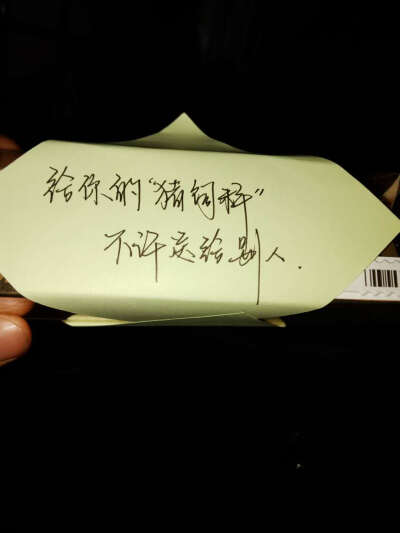 给你的“猪饲料”
不许送给别人.